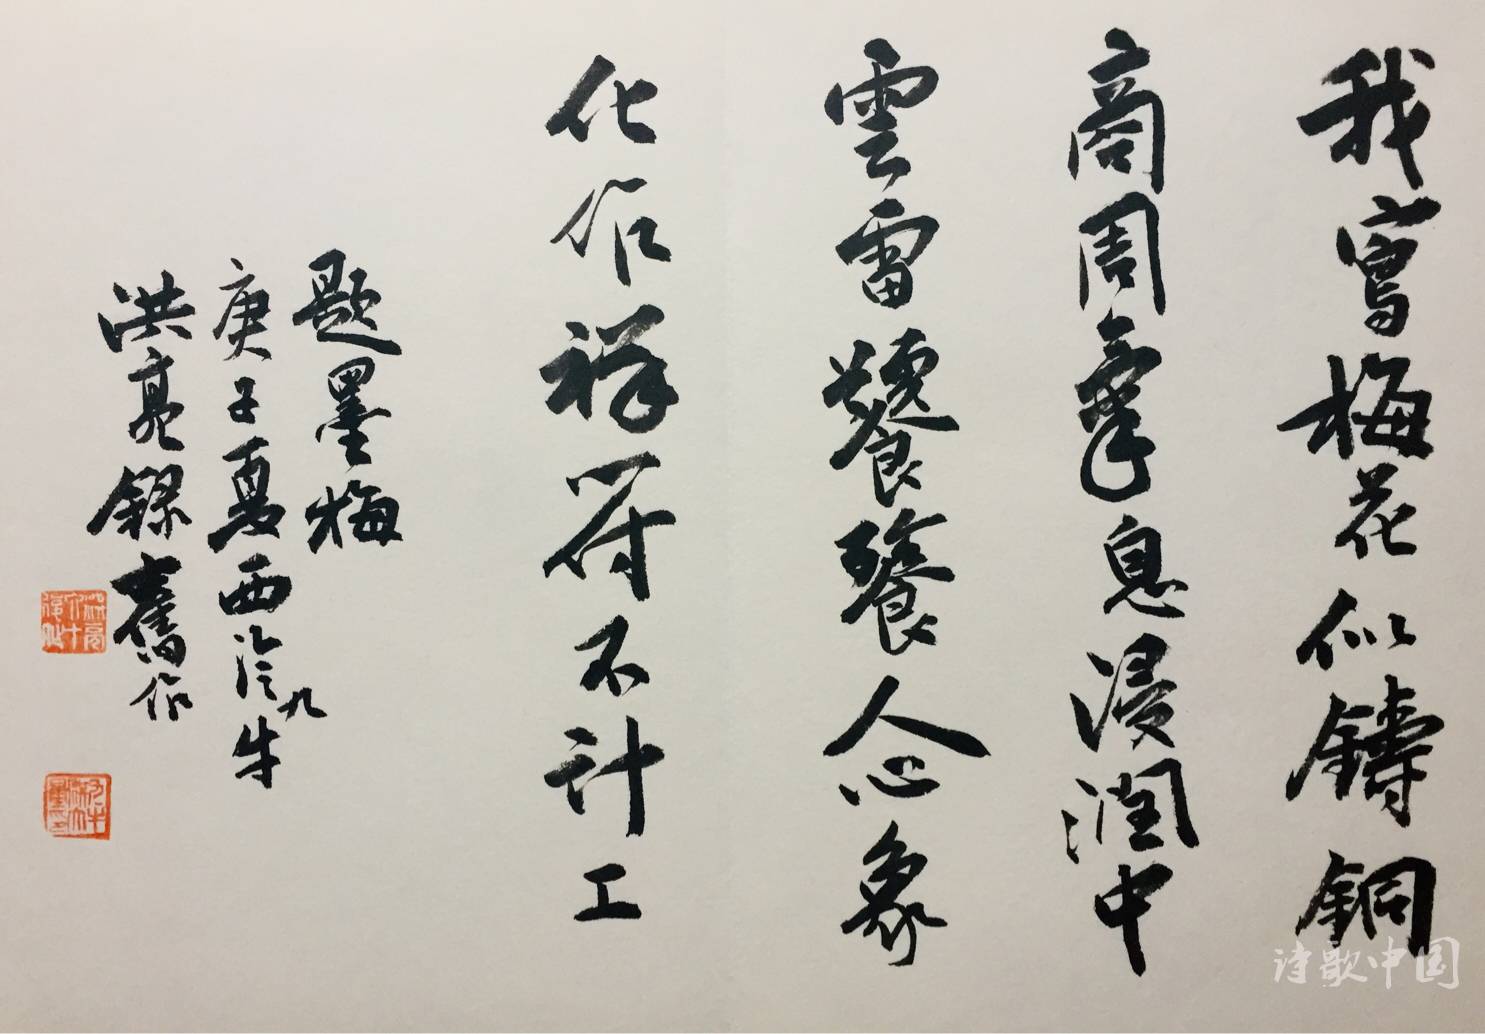 我寫梅花似鑄銅
商周氣息浸潤中
雲雷饕餮人心象
化作祥符不計工
題墨梅
庚子夏西泠九牛
洪亮錄舊作
诗歌中国